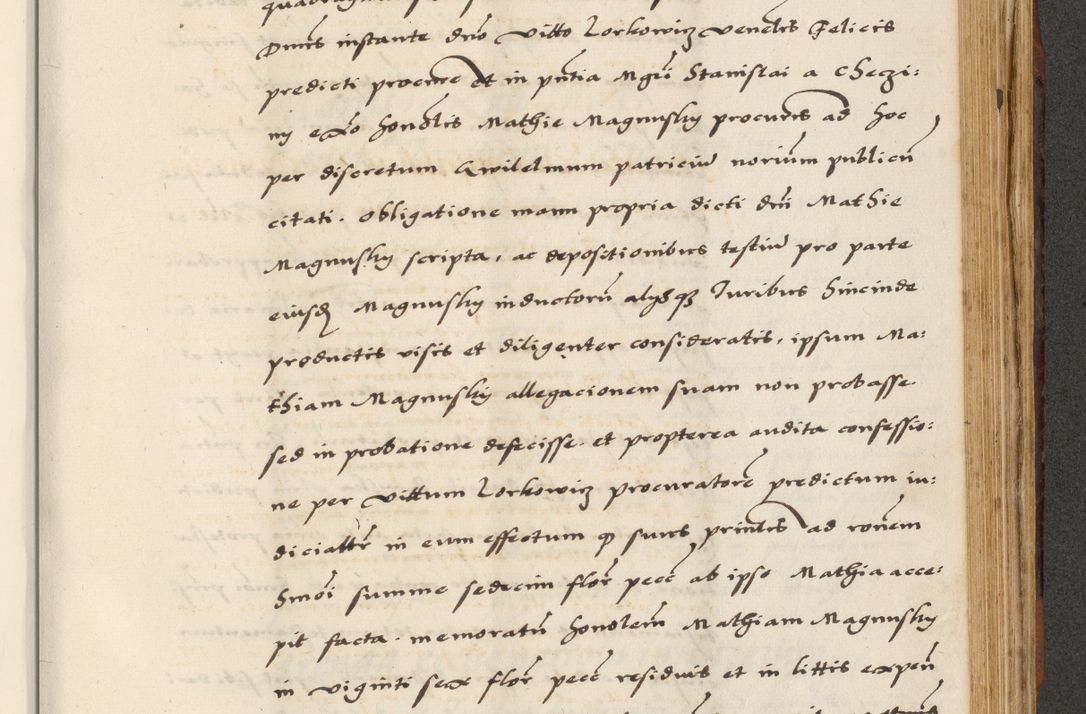 Dnus instante dno Vitto Lorkowicz venelis Felicis
predicti procure et in pntia Mgri Stanislai a Checzi:
ny ex o honolis Mathie Magnusky procuris ad hoc
per discretum Gwilelmum patriciu norium publicu
citati. Obligatione manu propria dicti dni Mathie
Magnusky scripta, ac depositionibus testiu pro parte
eiusd Magnusky inductoru alysq3 Iuribus hincinde
productis visis et diligenter consideratis, ipsum Ma:
thiam Magnusky allegacionem suam non probasse
sed in probatione defecisse. et propterea audita confessio:
ne per Vittum Lorkowicz procuratore predictum iu:
dicialiter in eum effectum q suus prinlis ad ronem
hmoi summe sedecim flor pecc ab ipso Mathia acce:
pit facta. memoratu honolem Mathiam Magnusky
in viginti sex flor pecc residuis et in littis expen